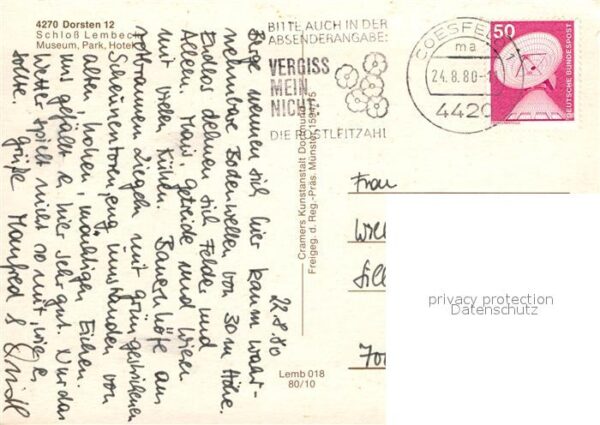 4270 Dorsten 12
Schloß Lembeck
Museum, Park, Hotel
BITTE AUCH IN DER
ABSENDERANGABE:
VERGISS
MEIN
NICHT
DIE POSTLEITZAHL
COESFELD 1
ma
24.8.80
4420
50
DEUTSCHE BUNDESPOST
22.8.80
Berge nennen sich hier kaum wahr-
nehmbare Bodenwellen von 30 m Höhe.
Endlos dehnen sich Felder und
Alleen. Mais, Getreide und Wiesen
mit vielen Kühen. Bauernhöfe aus
rotbraunen Ziegeln mit grüngestrichenen
Scheunentoren, eng umstanden von
alten, hohen, mächtigen Eichen.
Uns gefällt es hier sehr gut. Nur das
Wetter spielt nicht so mit, wie es
sollte.
Grüße Manfred &
Cramers Kunstanstalt Dortmund
Freigeg. d. Reg.-Präs. Münster
Lemb 018
80/10
Frau
privacy protection
Datenschutz